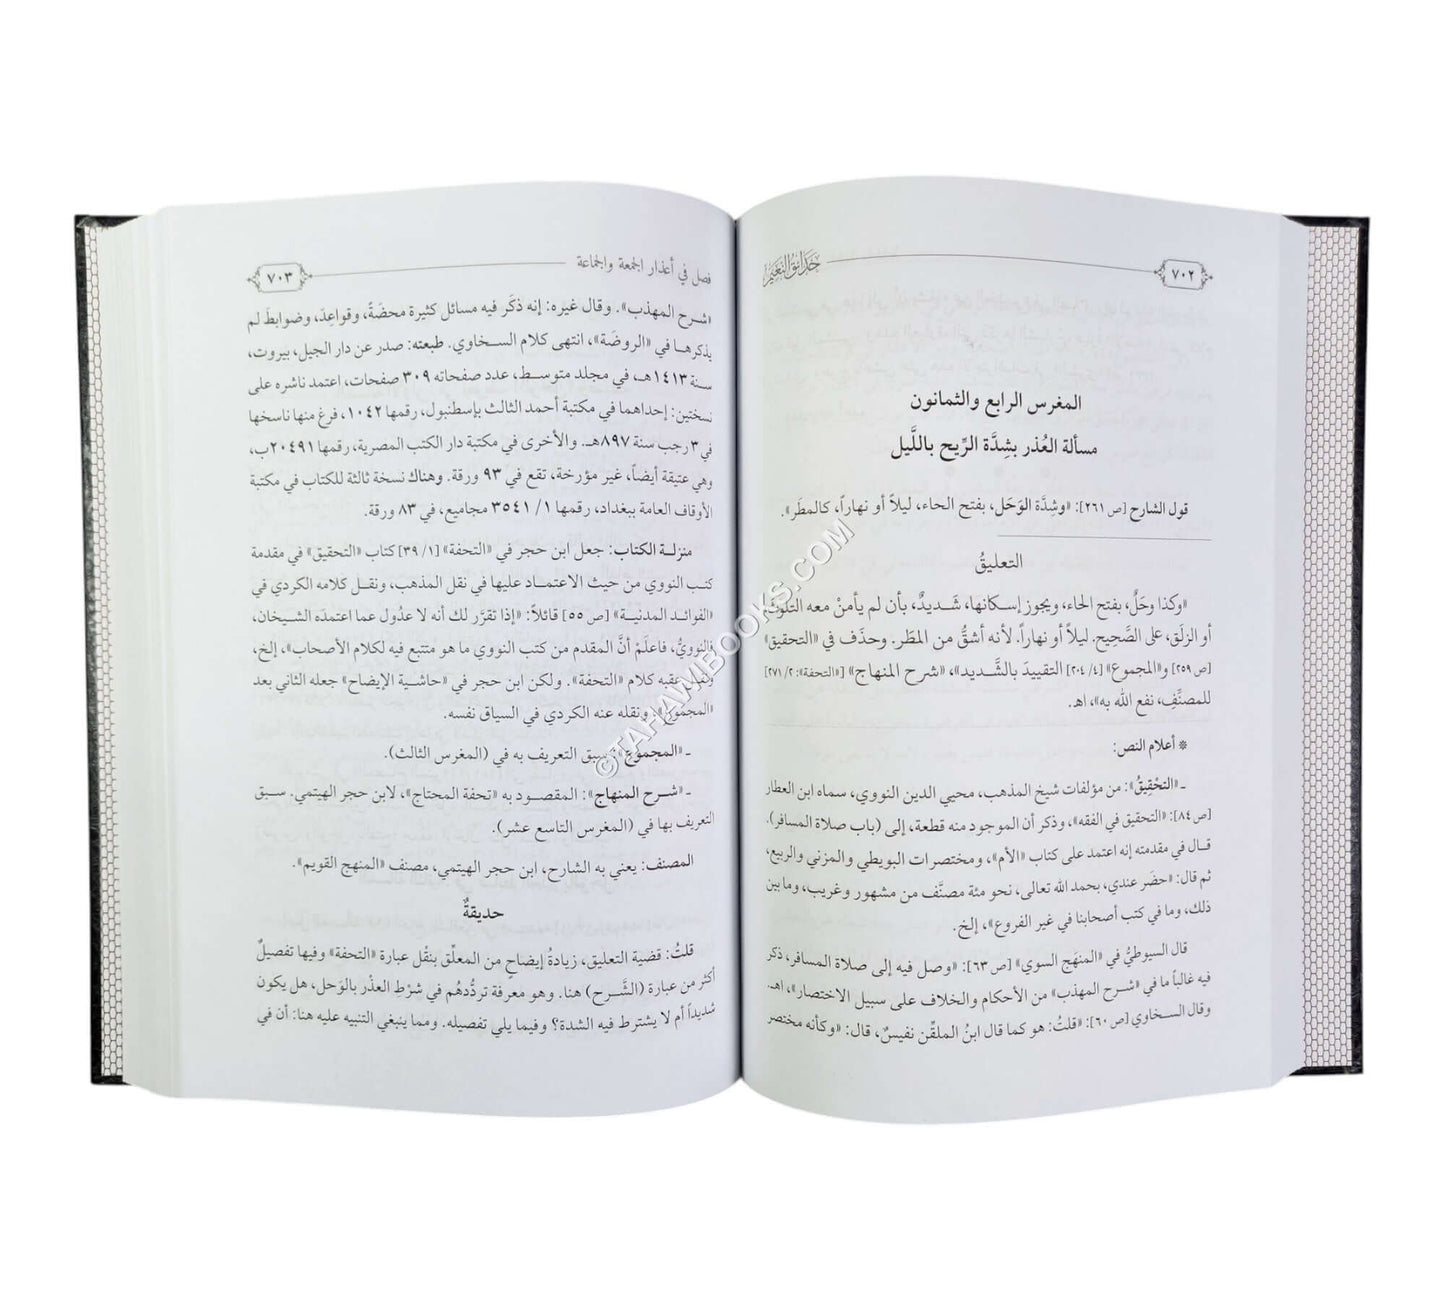 ٧٠٢
حدائق النعيم
المغرس الرابع والثمانون
مسألة العُذر بشِدَّة الرِّيح باللَّيل
قول الشارح [ص ٢٦١]: «وشِدَّة الوَحَل، بفتح الحاء، ليلاً أو نهاراً، كالمطَر».
التعليقُ
«وكذا وحَلٌ، بفتح الحاء، ويجوز إسكانها، شَديدٌ، بأن لم يأمنْ معه التلوث
أو الزلَق، على الصَّحيح. ليلاً أو نهاراً. لأنه أشقُّ من المطَر. وحذَف في «التحقيق»
[ص ٢٥٩] و«المجموع» [٤/ ٢٠٤] التقييدَ بالشَّديد»، «شرح المنهاج» [«التحفة»: ٢/ ٢٧١]
للمصنِّفِ، نفع الله به»، اهـ.
* أعلام النص:
ـ «التحْقِيقُ»: من مؤلفات شيخ المذهب، محيي الدين النووي، سماه ابن العطار
[ص ٨٤]: «التحقيق في الفقه»، وذكر أن الموجود منه قطعة، إلى (باب صلاة المسافر).
قال في مقدمته إنه اعتمد على كتاب «الأم»، ومختصرات البويطي والمزني والربيع،
ثم قال: «حضَر عندي، بحمد الله تعالى، نحو مئة مصنَّف من مشهور وغريب، وما بين
ذلك، وما في كتب أصحابنا في غير الفروع»، إلخ.
قال السيوطيُّ في «المنهَج السوي» [ص ٦٣]: «وصل فيه إلى صلاة المسافر، ذكر
فيه غالباً ما في «شرح المهذب» من الأحكام والخلاف على سبيل الاختصار»، اهـ.
وقال السخاوي [ص ٦٠]: «قلتُ: هو كما قال ابنُ الملقِّن نفيسٌ، قال: «وكأنه مختصر
فصل في أعذار الجمعة والجماعة
٧٠٣
«شرح المهذب». وقال غيره: إنه ذكَر فيه مسائل كثيرة محضَةً، وقواعِدَ، وضوابطَ لم
يذكرها في «الروضَة»، انتهى كلام السخاوي. طبعته: صدر عن دار الجيل، بيروت،
سنة ١٤١٣هـ، في مجلد متوسط، عدد صفحاته ٣٠٩ صفحات، اعتمد ناشره على
نسختين: إحداهما في مكتبة أحمد الثالث بإسطنبول، رقمها ١٠٤٢، فرغ منها ناسخها
في ٣ رجب سنة ٨٩٧هـ. والأخرى في مكتبة دار الكتب المصرية، رقمها ٢٠٤٩١ب،
وهي عتيقة أيضاً، غير مؤرخة، تقع في ٩٣ ورقة. وهناك نسخة ثالثة للكتاب في مكتبة
الأوقاف العامة ببغداد، رقمها ١/ ٣٥٤١ مجاميع، في ٨٣ ورقة.
منزلة الكتاب: جعل ابن حجر في «التحفة» [١/ ٣٩] كتاب «التحقيق» في مقدمة
كتب النووي من حيث الاعتماد عليها في نقل المذهب، ونقل كلامه الكردي في
«الفوائد المدنية» [ص ٥٥] قائلاً: «إذا تقرَّر لك أنه لا عدُول عما اعتمدَه الشيخان،
فالنوويُّ، فاعلَمْ أنَّ المقدم من كتب النووي ما هو متتبع فيه لكلام الأصحاب»، إلخ،
عقبه كلام «التحفة». ولكن ابن حجر في «حاشية الإيضاح» جعله الثاني بعد
«المجموع»، ونقله عنه الكردي في السياق نفسه.
ـ «المجموع»: سبق التعريف به في (المغرس الثالث).
ـ «شرح المنهاج»: المقصود به «تحفة المحتاج»، لابن حجر الهيتمي. سبق
التعريف بها في (المغرس التاسع عشر).
المصنف: يعني به الشارح، ابن حجر الهيتمي، مصنف «المنهج القويم».
حديقةٌ
قلتُ: قضية التعليق، زيادةُ إيضاحٍ من المعلِّق بنقْل عبارة «التحفة» وفيها تفصيلٌ
أكثر من عبارة (الشَّرح) هنا. وهو معرفة تردُّدهُم في شرْطِ العذْر بالوَحَل، هل يكون
شديداً أم لا يشترط فيه الشدة؟ وفيما يلي تفصيله. ومما ينبغي التنبيه عليه هنا: أن في
©TAHAWIBOOKS.COM